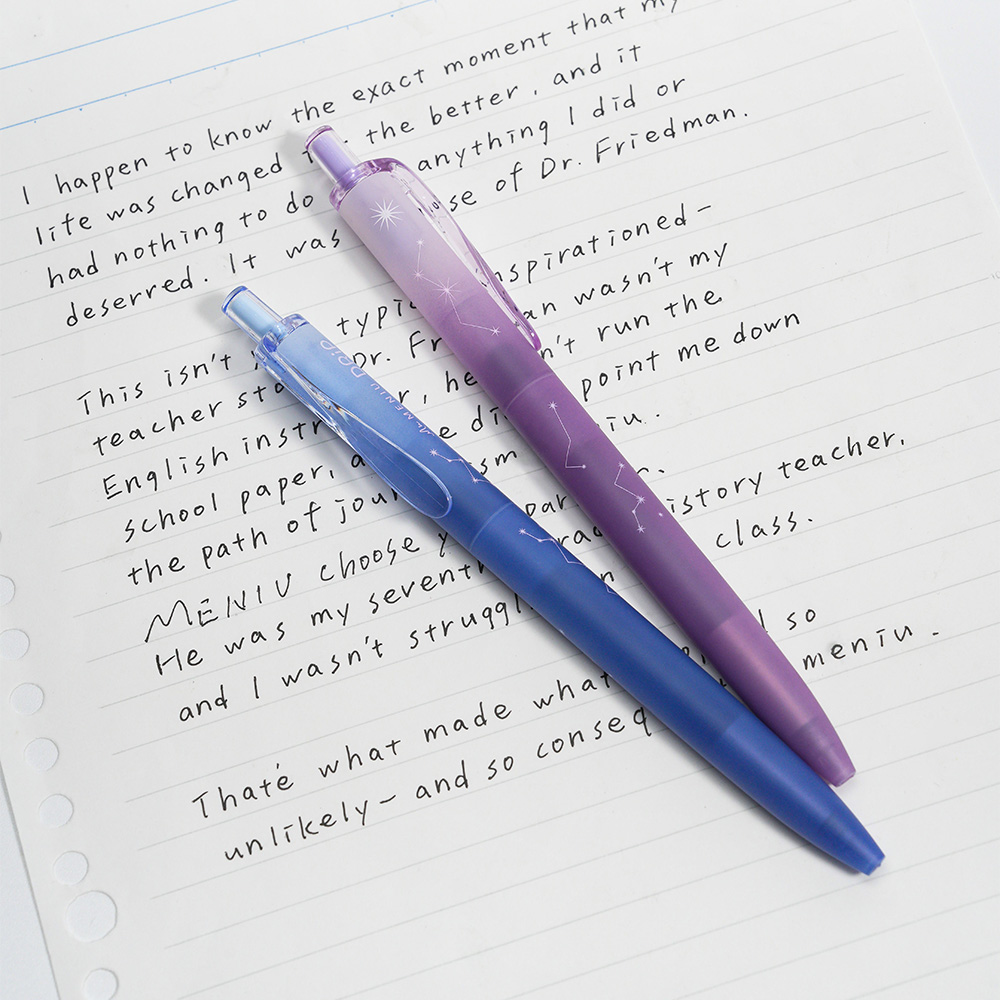 I happen to know the exact moment that my
life was changed the better, and it
had nothing to do anything I did or
deserred. It was se of Dr. Friedman.
This isn't typic inspirationed-
teacher sto Dr. Fr an wasn't my
English instr r, he n't run the
school paper, a e di point me down
the path of jour ism iu.
MENIU choose y par r.
He was my seventh rad istory teacher,
and I wasn't struggl n class.
Thaté what made what so
unlikely- and so conseq meniu.
MENIU